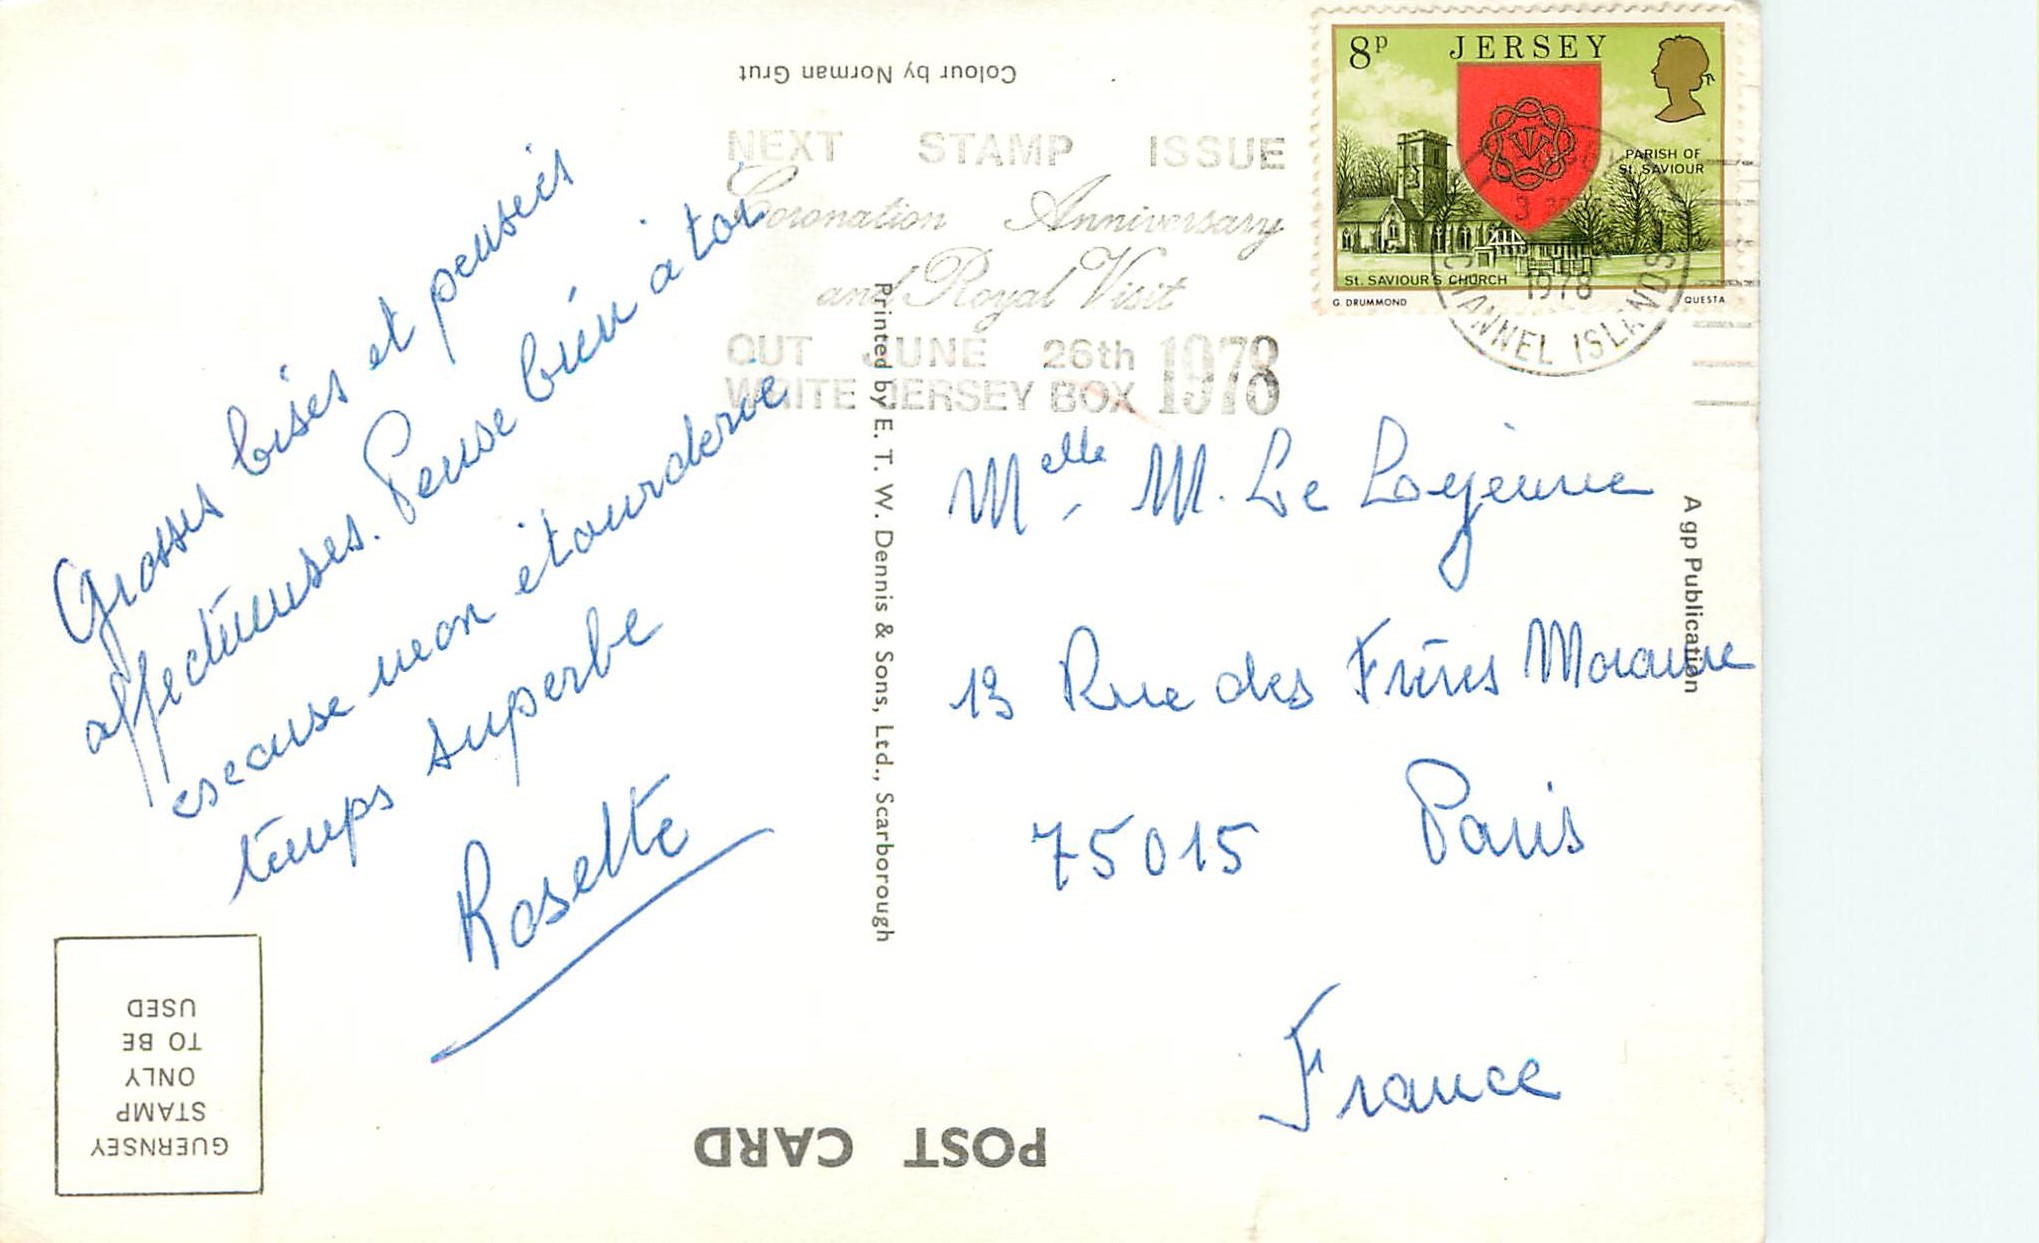 Colour by Norman Grut
8p JERSEY
PARISH OF
St. SAVIOUR
St. SAVIOUR'S CHURCH
G. DRUMMOND QUESTA
1978
CHANNEL ISLANDS
NEXT STAMP ISSUE
Coronation Anniversary
and Royal Visit
OUT JUNE 26th 1978
WRITE JERSEY BOX
Grosses bises et penseés
affectueuses. Pense bien à toi
escause mon étourderie
temps superbe
Rosette
Printed by E. T. W. Dennis & Sons, Ltd., Scarborough
Melle M. Le Lejeune
13 Rue des Frères Morane
75015 Paris
France
A gp Publication
GUERNSEY
STAMP
ONLY
TO BE
USED
POST CARD